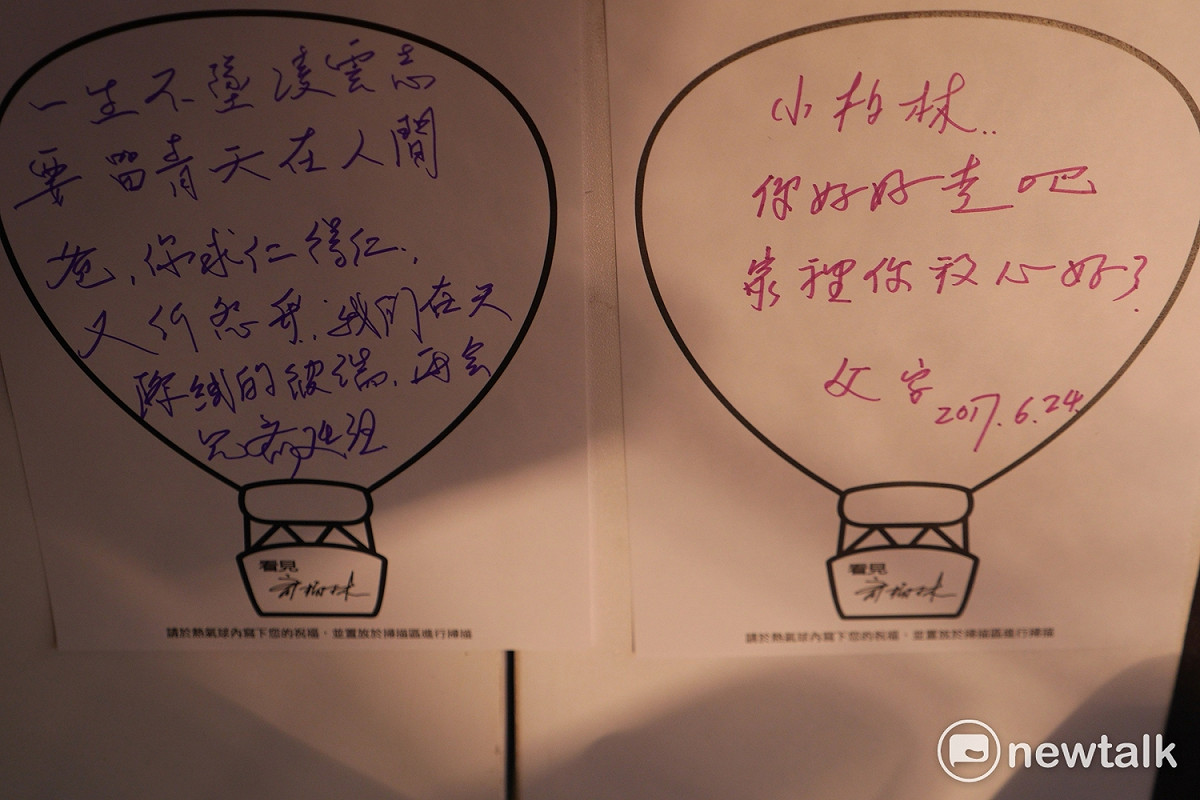 一生不墜凌雲志
要留青天在人間
爸,你求仁得仁,
又何怨乎.我們在天
際線的彼端,再會
看見
齊柏林
請於熱氣球內寫下您的祝福,並置放於掃描區進行掃描
小柏林..
你好好走吧
家裡你放心好了.
文
2017.6.24
看見
齊柏林
請於熱氣球內寫下您的祝福,並置放於掃描區進行掃描
newtalk